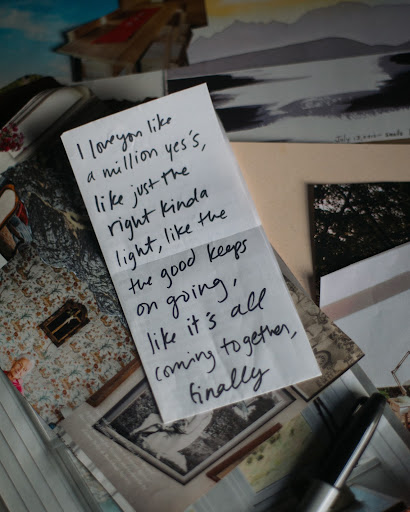 I love you like
a million yes's,
like just the
right kinda
light, like the
the good keeps
on going,
like it's all
coming together,
finally